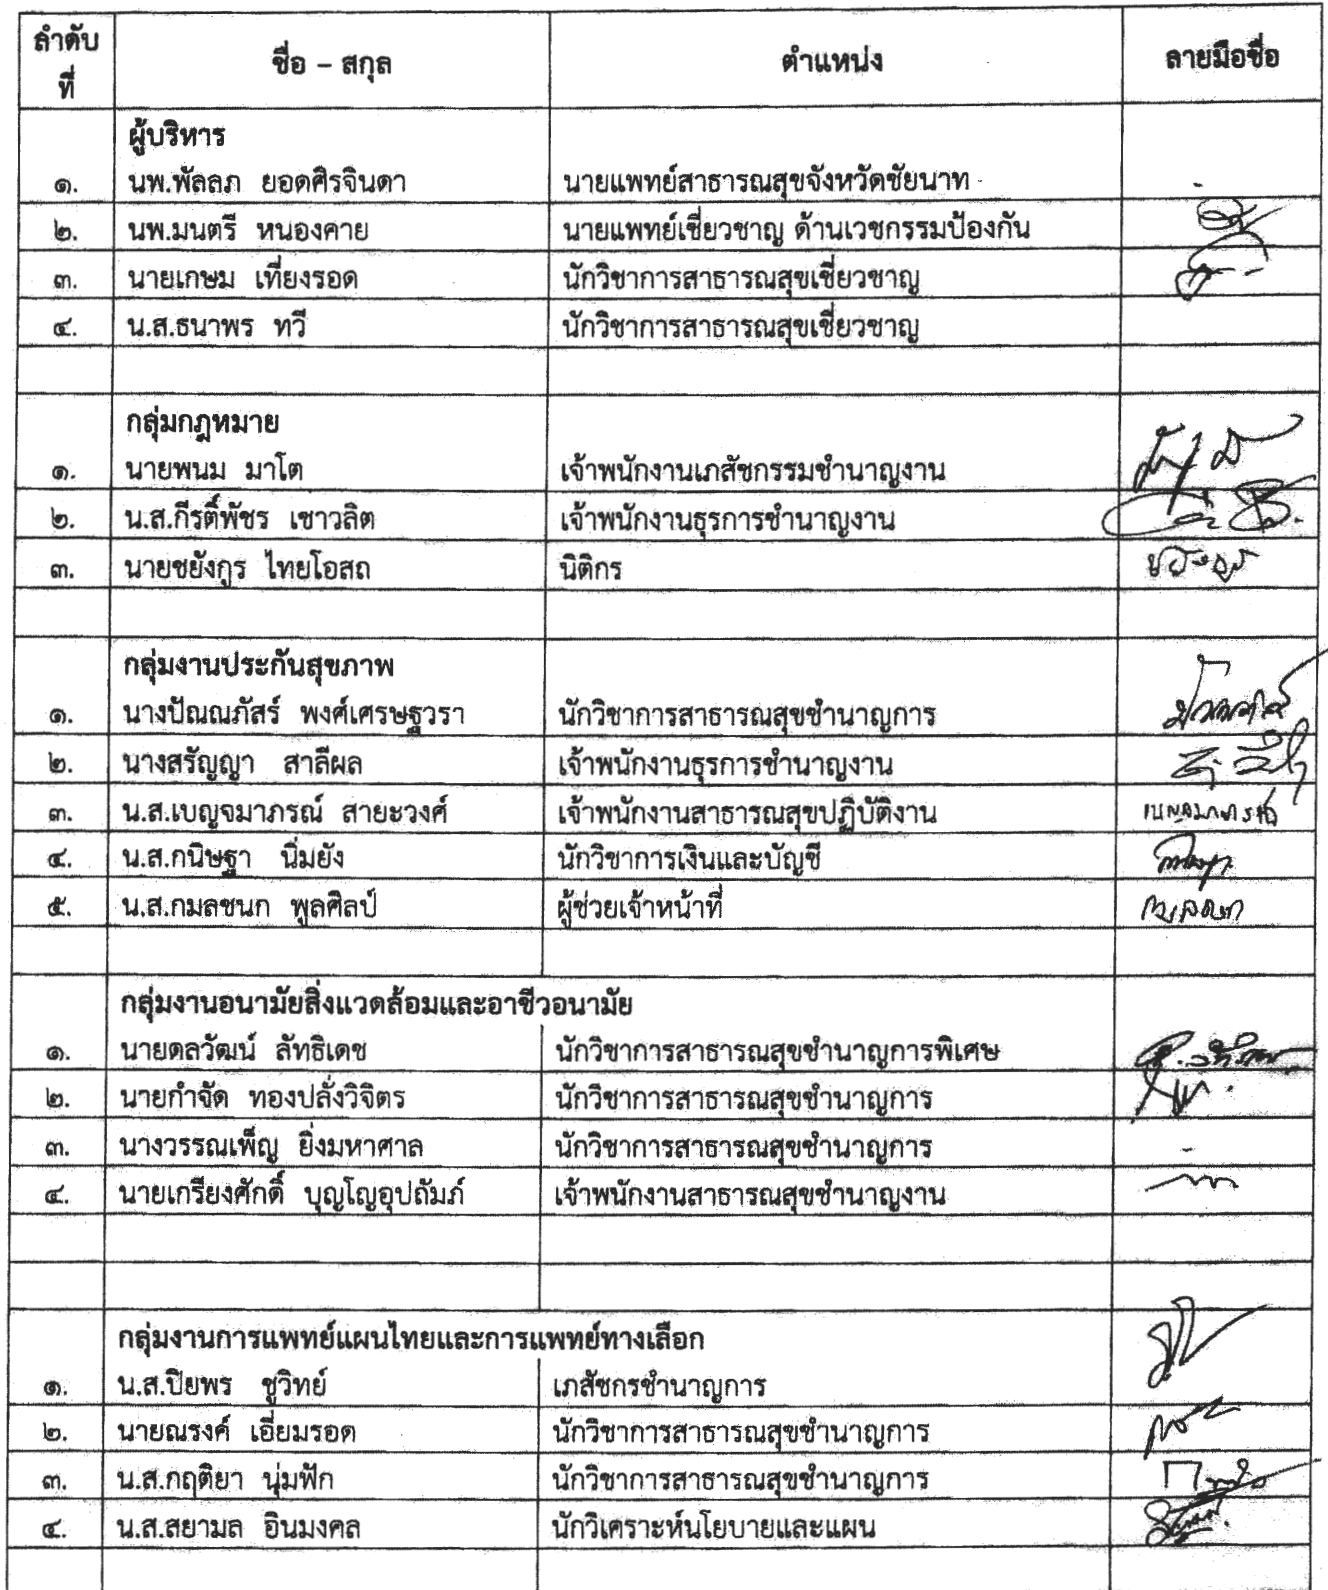 ลำดับที่ ชื่อ – สกุล ตำแหน่ง ลายมือชื่อ
ผู้บริหาร
๑. นพ.พัลลภ ยอดศิรจินดา นายแพทย์สาธารณสุขจังหวัดชัยนาท -
๒. นพ.มนตรี หนองคาย นายแพทย์เชี่ยวชาญ ด้านเวชกรรมป้องกัน
๓. นายเกษม เที่ยงรอด นักวิชาการสาธารณสุขเชี่ยวชาญ
๔. น.ส.ธนาพร ทวี นักวิชาการสาธารณสุขเชี่ยวชาญ
กลุ่มกฎหมาย
๑. นายพนม มาโต เจ้าพนักงานเภสัชกรรมชำนาญงาน
๒. น.ส.กีรติ์พัชร เชาวลิต เจ้าพนักงานธุรการชำนาญงาน
๓. นายชยังกูร ไทยโอสถ นิติกร
กลุ่มงานประกันสุขภาพ
๑. นางปัณณภัสร์ พงศ์เศรษฐวรา นักวิชาการสาธารณสุขชำนาญการ
๒. นางสรัญญา สาลีผล เจ้าพนักงานธุรการชำนาญงาน
๓. น.ส.เบญจมาภรณ์ สายะวงศ์ เจ้าพนักงานสาธารณสุขปฏิบัติงาน เบญจมาภรณ์
๔. น.ส.กนิษฐา นิ่มยัง นักวิชาการเงินและบัญชี
๕. น.ส.กมลชนก พูลศิลป์ ผู้ช่วยเจ้าหน้าที่ กมลชนก
กลุ่มงานอนามัยสิ่งแวดล้อมและอาชีวอนามัย
๑. นายดลวัฒน์ ลัทธิเดช นักวิชาการสาธารณสุขชำนาญการพิเศษ
๒. นายกำจัด ทองปลั่งวิจิตร นักวิชาการสาธารณสุขชำนาญการ
๓. นางวรรณเพ็ญ ยิ่งมหาศาล นักวิชาการสาธารณสุขชำนาญการ -
๔. นายเกรียงศักดิ์ บุญโญอุปถัมภ์ เจ้าพนักงานสาธารณสุขชำนาญงาน
กลุ่มงานการแพทย์แผนไทยและการแพทย์ทางเลือก
๑. น.ส.ปิยพร ชูวิทย์ เภสัชกรชำนาญการ
๒. นายณรงค์ เอี่ยมรอด นักวิชาการสาธารณสุขชำนาญการ
๓. น.ส.กฤติยา นุ่มฟัก นักวิชาการสาธารณสุขชำนาญการ
๔. น.ส.สยามล อินมงคล นักวิเคราะห์นโยบายและแผน